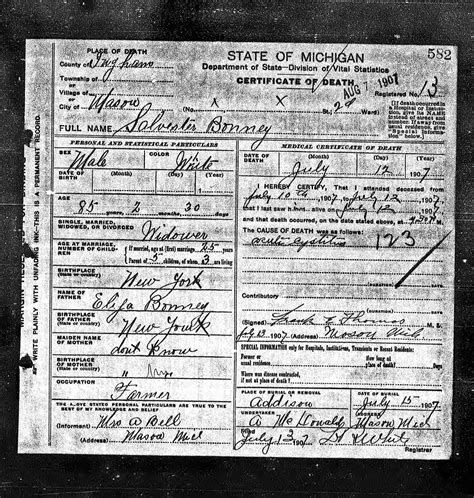 582
PLACE OF DEATH
County of Ingham
Township of
Village of
City of Mason
STATE OF MICHIGAN
Department of State—Division of Vital Statistics
CERTIFICATE OF DEATH
AUG 1 1907
Registered No. 13
FULL NAME Salvester Bonney
[If death occurred in a Hospital or Institution, give the NAME instead of street and number.
PERSONAL AND STATISTICAL PARTICULARS
SEX Male
COLOR White
DATE OF BIRTH
AGE
85 2 30
SINGLE, MARRIED, WIDOWED, OR DIVORCED
Widower
AGE AT MARRIAGE, NUMBER OF CHILDREN
If married, age at (first) marriage 25 years
Parent of 5 children, of whom 3 are living
BIRTHPLACE
(State or country)
New York
NAME OF FATHER
Eliza Bonney
BIRTHPLACE OF FATHER
(State or country)
New York
MAIDEN NAME OF MOTHER
dont Know
BIRTHPLACE OF MOTHER
(State or country)
OCCUPATION
Farmer
THE ABOVE STATED PERSONAL PARTICULARS ARE TRUE TO THE BEST OF MY KNOWLEDGE AND BELIEF
(Informant) Mrs A Bell
(Address) Mason Mich
MEDICAL CERTIFICATE OF DEATH
DATE OF DEATH
July 12 1907
I HEREBY CERTIFY, That I attended deceased from
July 10th 1907 to July 12 1907
that I last saw h alive on July 12 1907
and that death occurred, on the date stated above, at
The CAUSE OF DEATH was as follows:
acute cystitis
123
Contributory
(Signed) Frank E Thomas M. D.
July 13 1907 (Address) Mason Mich
Special Information only for Hospitals, Institutions, Transients or Recent Residents.
PLACE OF BURIAL OR REMOVAL
Addison
DATE OF BURIAL
July 15 1907
UNDERTAKER
A McDonald
Mason Mich
Filed July 13 1907
WRITE PLAINLY WITH UNFADING INK—THIS IS A PERMANENT RECORD.